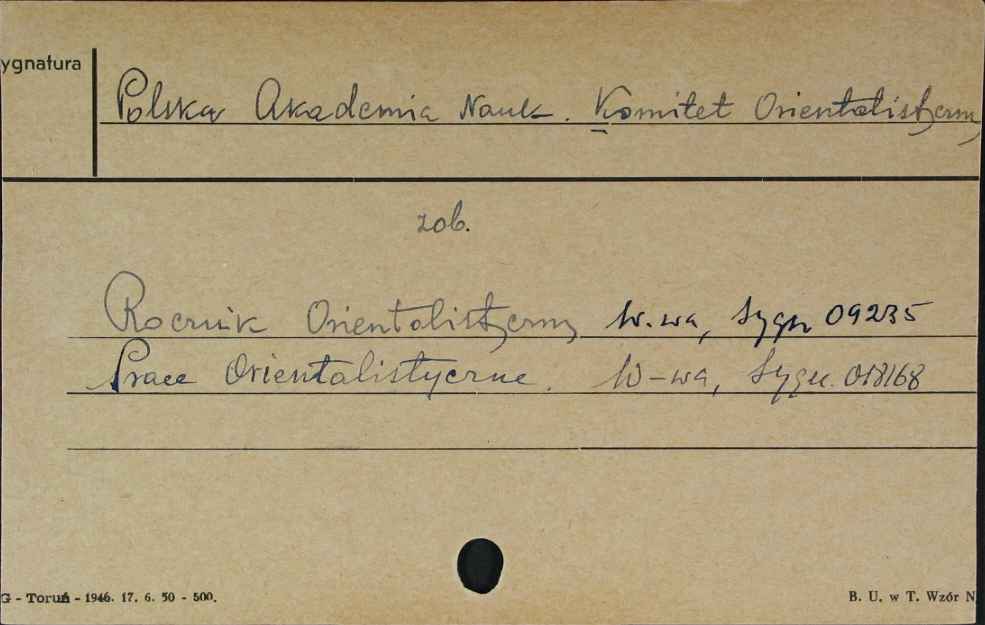 ygnatura
Polska Akademia Nauk. Komitet Orientalistyczny
zob.
Rocznik Orientalistyczny W.wa, Sygn 09235
Prace Orientalistyczne. W-wa, Sygn. 018168
G - Toruń - 1946. 17. 6. 50 - 500.
B. U. w T. Wzór N